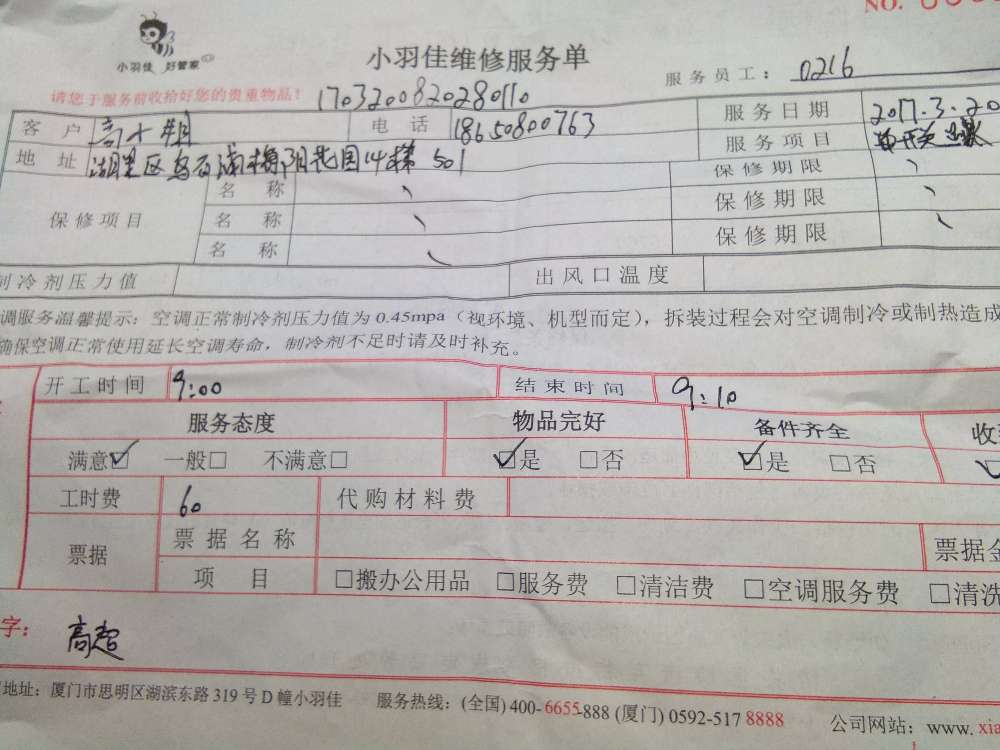 NO.
小羽佳 好管家
小羽佳维修服务单
服务员工： 0216
请您于服务前收拾好您的贵重物品！ 1703200820280110
客户 电话 18650800763 服务日期 2017.3.20
地址 湖里区乌石浦 花园14栋 501 服务项目
保修项目 名称 保修期限
名称 保修期限
名称 保修期限
制冷剂压力值 出风口温度
调服务温馨提示：空调正常制冷剂压力值为 0.45mpa（视环境、机型而定），拆装过程会对空调制冷或制热造成
确保空调正常使用延长空调寿命，制冷剂不足时请及时补充。
开工时间 9:00 结束时间 9:10
服务态度 物品完好 备件齐全 收
满意☑ 一般□ 不满意□ ☑是 □否 ☑是 □否
工时费 60 代购材料费
票据 票据名称 票据金
项目 □搬办公用品 □服务费 □清洁费 □空调服务费 □清洗
字： 高超
地址：厦门市思明区湖滨东路 319 号 D 幢小羽佳 服务热线：(全国) 400-6655-888 (厦门) 0592-517 8888 公司网站：www. xia